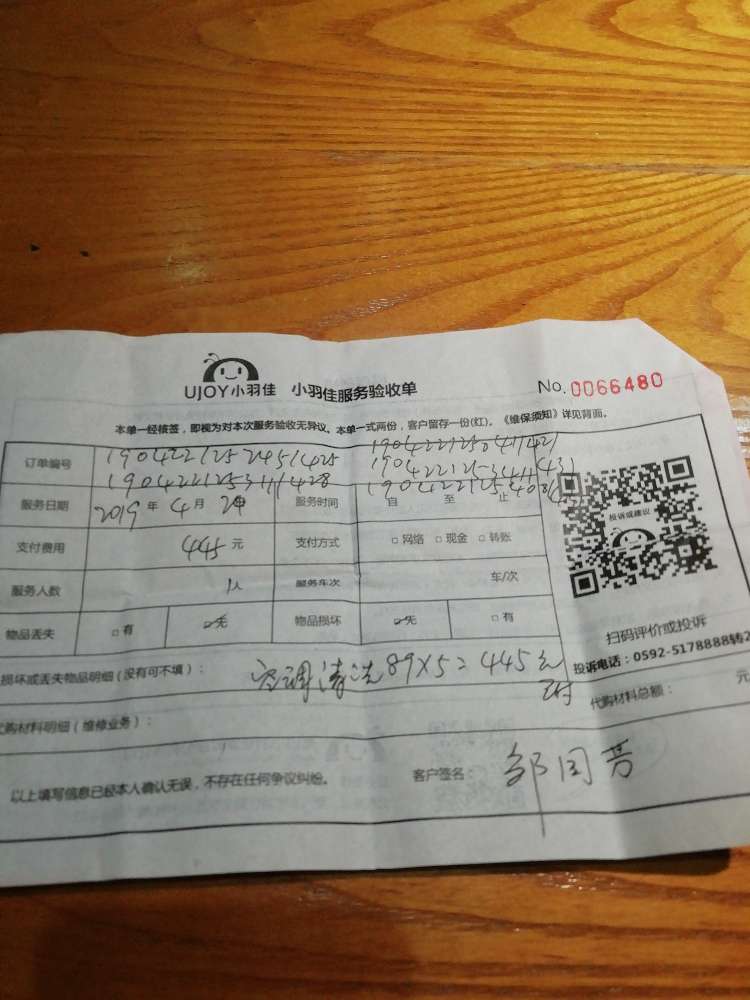 UJOY小羽佳 小羽佳服务验收单 No.0066480
本单一经核签，即视为对本次服务验收无异议。本单一式两份，客户留存一份(红)。《维保须知》详见背面。
订单编号 1904221252451425
服务日期 2019年4月 服务时间 自 至 止
支付费用 445元 支付方式 □网络 □现金 □转账
服务人数 1人 服务车次 车/次
物品丢失 □有 □无 物品损坏 □无 □有
投诉或建议
扫码评价或投诉
投诉电话：0592-5178888转2
损坏或丢失物品明细（没有可不填）： 空调清洗89X5=445元
代购材料总额： 元
代购材料明细（维修业务）：
以上填写信息已经本人确认无误，不存在任何争议纠纷。 客户签名：